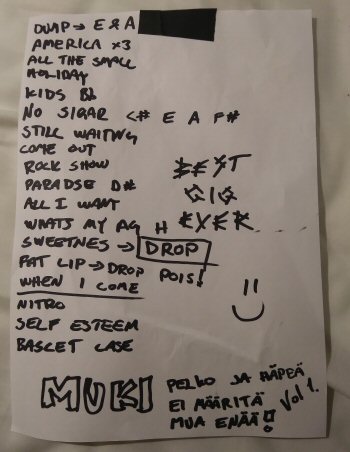 DUMP → E & A
AMERICA x3
ALL THE SMALL
HOLIDAY
KIDS
NO SIGAR C# E A F#
STILL WAITING
COME OUT
ROCK SHOW
PARADSE D#
ALL I WANT
WHATS MY AG H
SWEETNES → DROP
FAT LIP → DROP POIS!
WHEN I COME
NITRO
SELF ESTEEM
BASCET CASE
BEST
GIG
EVER
MUKI
PELKO JA HÄPEÄ
EI MÄÄRITÄ
MUA ENÄÄ! Vol 1.